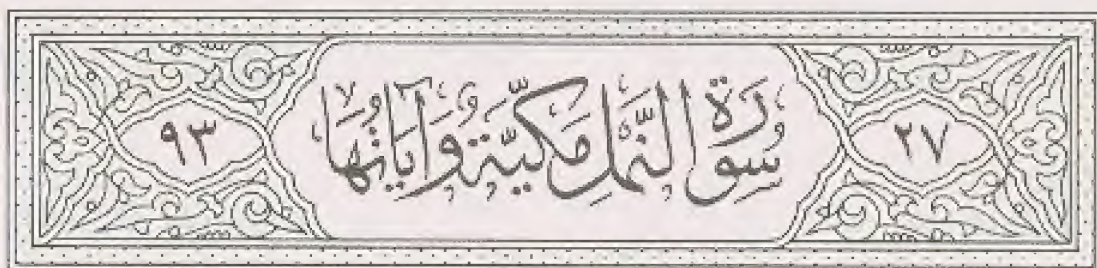 ٢٧ سُورَةُ النَّمْلِ مَكِّيَّة وَآيَاتُهَا ٩٣